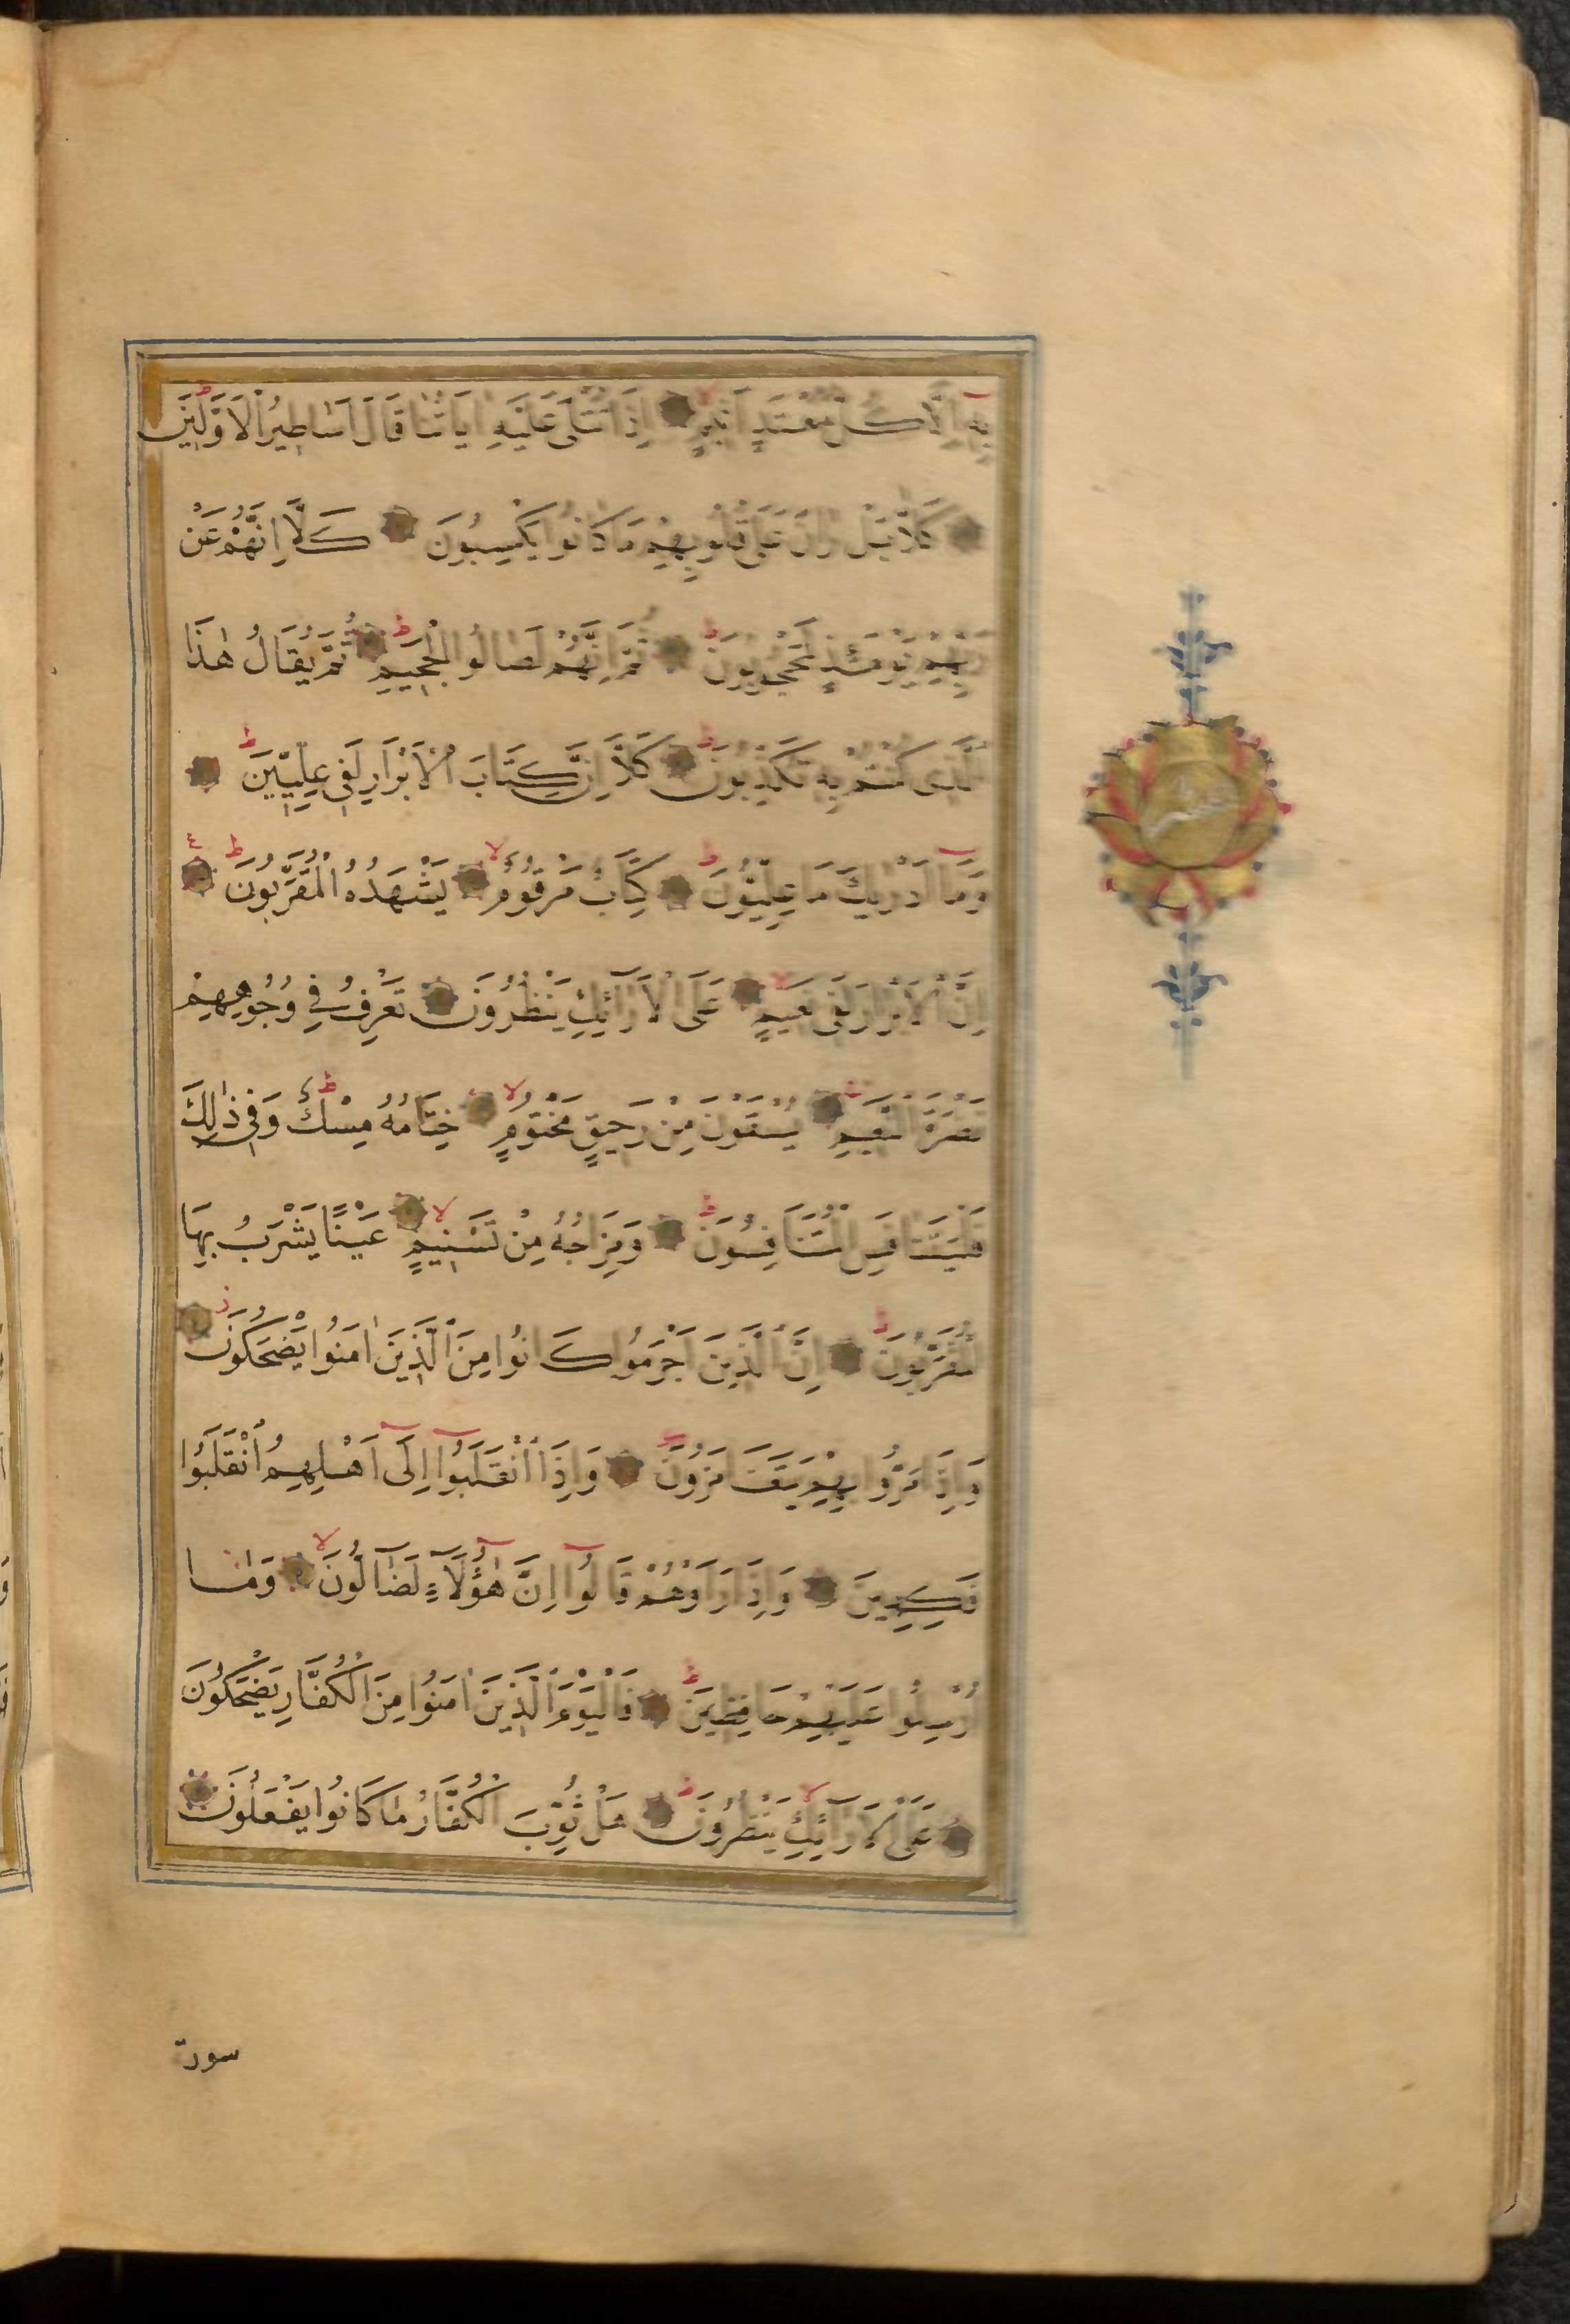 بِهِ اِلَّا كُلُّ مُعْتَدٍ اَثِيمٍ اِذَا تُتْلٰى عَلَيْهِ اٰيَاتُنَا قَالَ اَسَاطِيرُ الْاَوَّلِينَ
كَلَّا بَلْ رَانَ عَلٰى قُلُوبِهِمْ مَا كَانُوا يَكْسِبُونَ كَلَّا اِنَّهُمْ عَنْ
رَبِّهِمْ يَوْمَئِذٍ لَمَحْجُوبُونَ ثُمَّ اِنَّهُمْ لَصَالُوا الْجَحِيمِ ثُمَّ يُقَالُ هٰذَا
الَّذِى كُنْتُمْ بِهِ تُكَذِّبُونَ كَلَّا اِنَّ كِتَابَ الْاَبْرَارِ لَفِى عِلِّيِّينَ
وَمَا اَدْرٰيكَ مَا عِلِّيُّونَ كِتَابٌ مَرْقُومٌ يَشْهَدُهُ الْمُقَرَّبُونَ
اِنَّ الْاَبْرَارَ لَفِى نَعِيمٍ عَلَى الْاَرَآئِكِ يَنْظُرُونَ تَعْرِفُ فِى وُجُوهِهِمْ
نَضْرَةَ النَّعِيمِ يُسْقَوْنَ مِنْ رَحِيقٍ مَخْتُومٍ خِتَامُهُ مِسْكٌ وَفِى ذٰلِكَ
فَلْيَتَنَافَسِ الْمُتَنَافِسُونَ وَمِزَاجُهُ مِنْ تَسْنِيمٍ عَيْنًا يَشْرَبُ بِهَا
الْمُقَرَّبُونَ اِنَّ الَّذِينَ اَجْرَمُوا كَانُوا مِنَ الَّذِينَ اٰمَنُوا يَضْحَكُونَ
وَاِذَا مَرُّوا بِهِمْ يَتَغَامَزُونَ وَاِذَا انْقَلَبُوا اِلٰٓى اَهْلِهِمُ انْقَلَبُوا
فَكِهِينَ وَاِذَا رَاَوْهُمْ قَالُوا اِنَّ هٰٓؤُلَآءِ لَضَآلُّونَ وَمَا
اُرْسِلُوا عَلَيْهِمْ حَافِظِينَ فَالْيَوْمَ الَّذِينَ اٰمَنُوا مِنَ الْكُفَّارِ يَضْحَكُونَ
عَلَى الْاَرَآئِكِ يَنْظُرُونَ هَلْ ثُوِّبَ الْكُفَّارُ مَا كَانُوا يَفْعَلُونَ
سورة